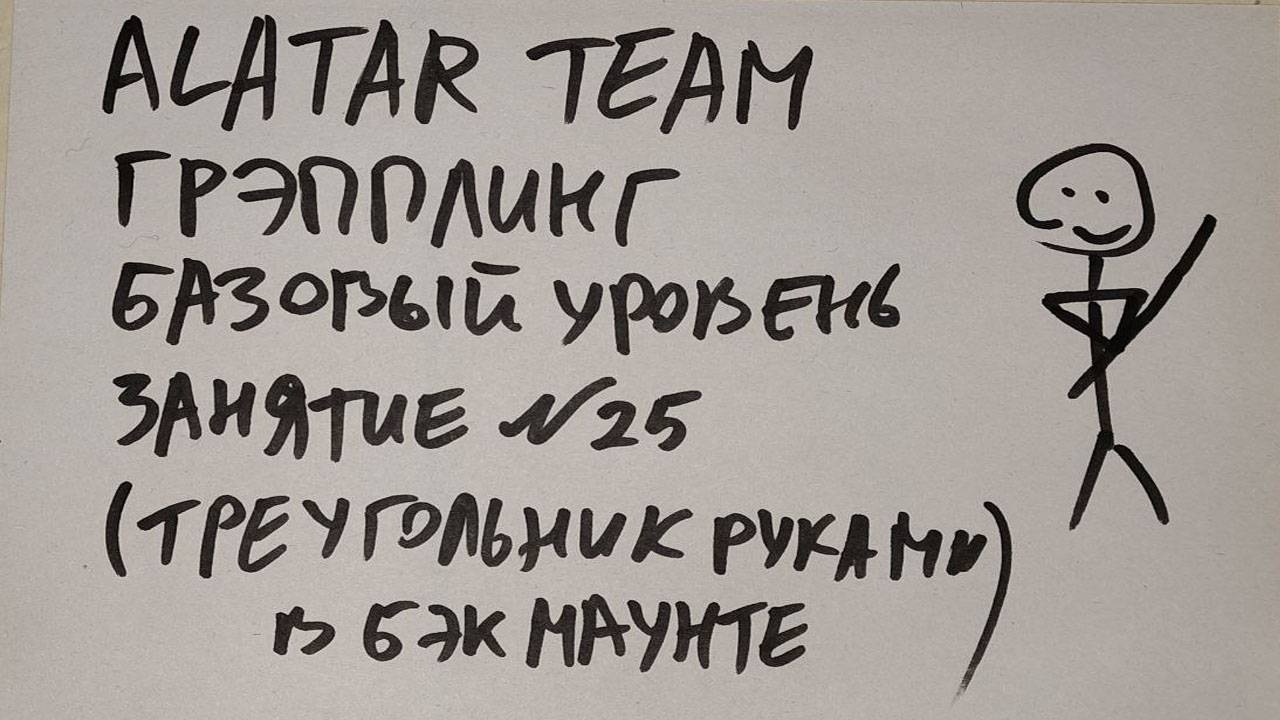 ALATAR TEAM
ГРЭППЛИНГ
БАЗОВЫЙ УРОВЕНЬ
ЗАНЯТИЕ №25
(ТРЕУГОЛЬНИК РУКАМИ)
В БЭК МАУНТЕ